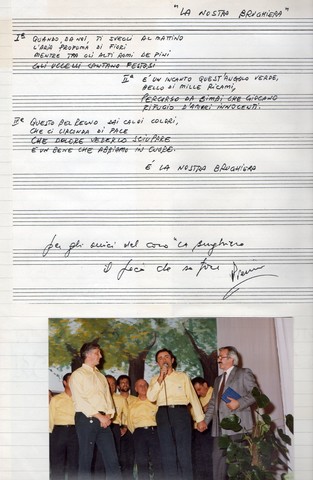 "LA NOSTRA BRUGHIERA"
Iª QUANDO, DA NOI, TI SVEGLI AL MATTINO
L'ARIA PROFUMA DI FIORI
MENTRE TRA GLI ALTI RAMI DEI PINI
GLI UCCELLI CANTANO FESTOSI
IIª È UN INCANTO QUEST'ANGOLO VERDE,
BELLO DI MILLE RICAMI,
PERCORSO DA BIMBI CHE GIOCANO
RIFUGIO D'AMORI INNOCENTI.
QUESTO BEL REGNO DAI CALDI COLORI,
CHE CI CIRCONDA DI PACE
CHE DOLORE VEDERLO SCIUPARE
È UN BENE CHE ABBIAMO IN CUORE.
È LA NOSTRA BRUGHIERA
per gli amici del coro "La Brughiera
il